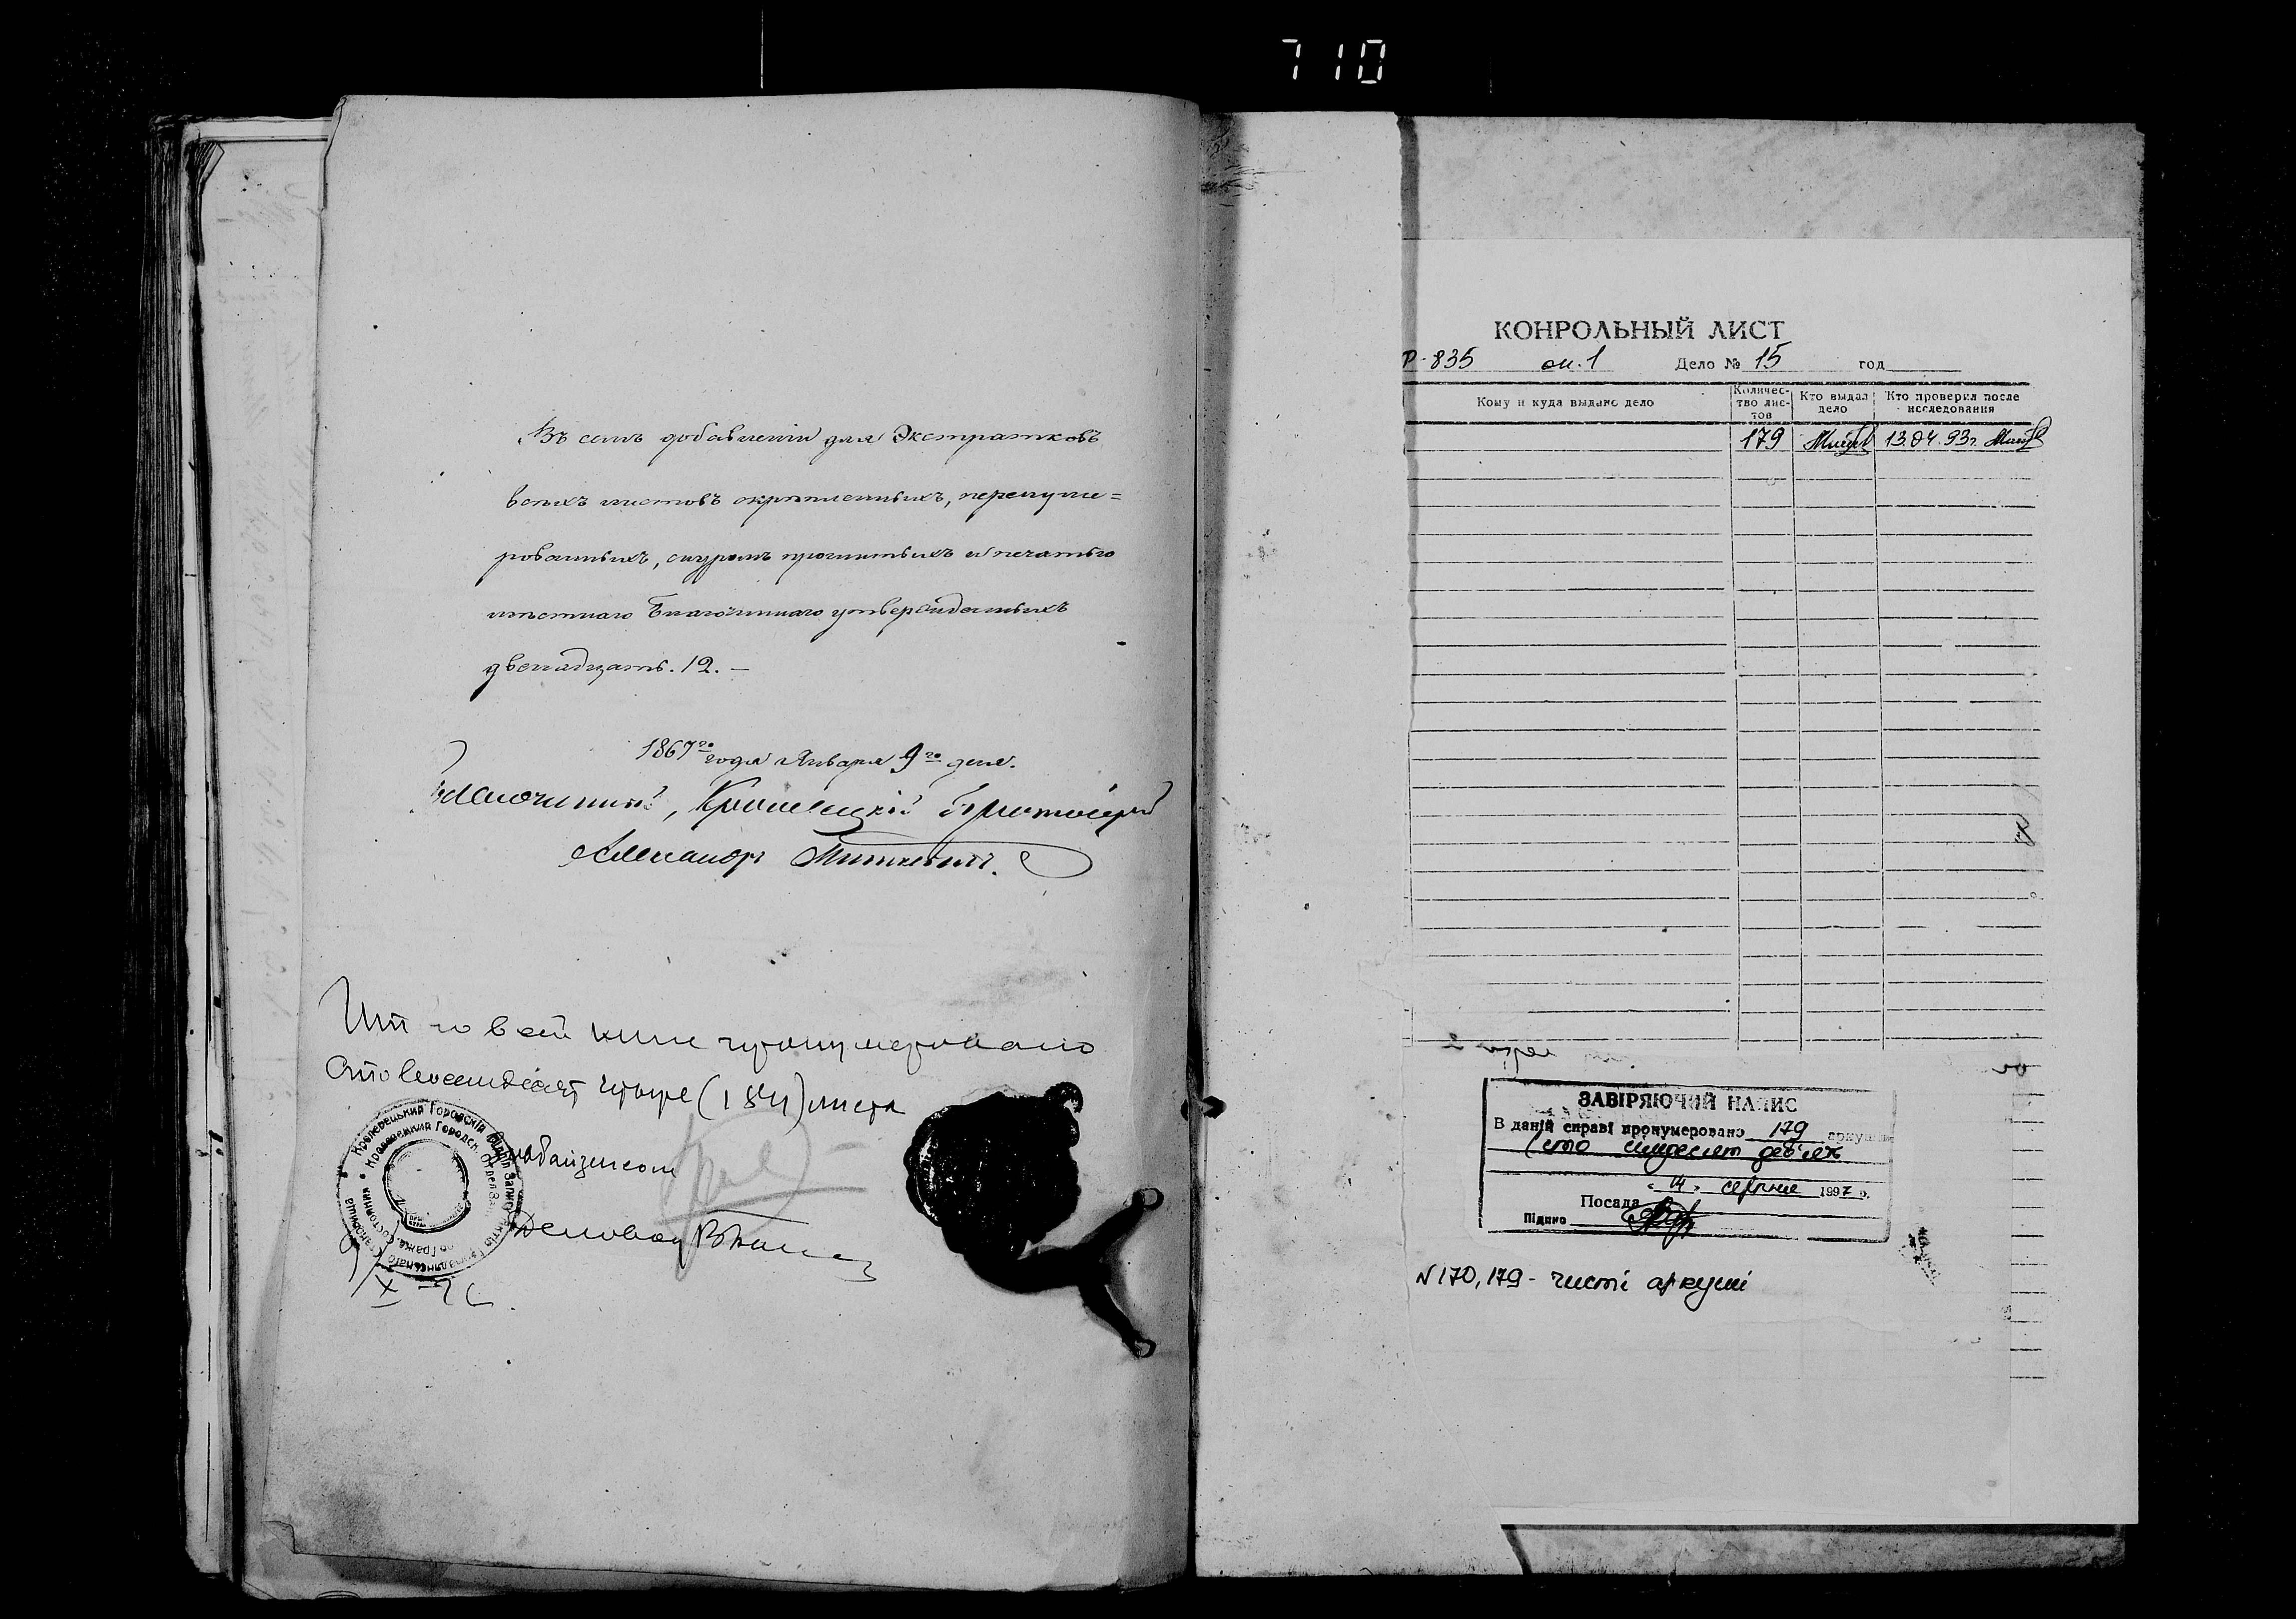 710
Въ семъ добавленіи для Экстрактковъ
всѣхъ листовъ скрѣпленныхъ, перенуме=
рованныхъ, снуромъ прошитыхъ и печатью
мѣстнаго Благочиннаго утвержденныхъ
двенадцать. 12. —
1867го года Января 9го дня.
Благочинный, Кролевецкій Протоіерей
Александръ
Итого в сей книге пронумеровано
сто восемьдесят четыре (184) листа
Кролевецький Городской
Кролевецкий Городск. Отдел
X
КОНРОЛЬНЫЙ ЛИСТ
Р-835 оп.1 Дело № 15 год
Кому и куда выдано дело
Количес-
тво лис-
тов
Кто выдал
дело
Кто проверил после
исследования
179 13.04.93г.
ЗАВІРЯЮЧИЙ НАПИС
В даній справі пронумеровано 179 аркушів
(сто сімдесят дев'ять
"14" серпня 1997 р.
Посада
Підпис
N 170, 179 - чисті аркуші